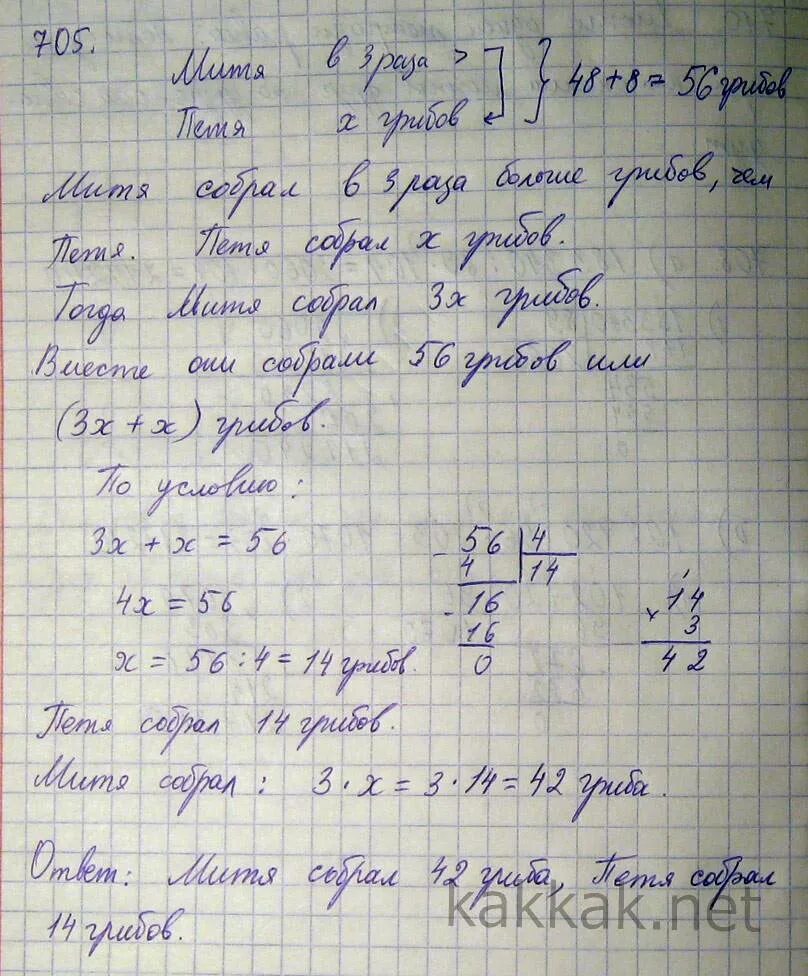 705.
Митя в 3 раза > } 48 + 8 = 56 грибов
Петя x грибов
Митя собрал в 3 раза больше грибов, чем
Петя. Петя собрал x грибов.
Тогда Митя собрал 3x грибов.
Вместе они собрали 56 грибов или
(3x + x) грибов.
По условию:
3x + x = 56
4x = 56
x = 56 : 4 = 14 грибов.
- 56 | 4
4 | 14
- 16
16
0
1
× 14
3
42
Петя собрал 14 грибов.
Митя собрал: 3 · x = 3 · 14 = 42 гриба.
Ответ: Митя собрал 42 гриба, Петя собрал
14 грибов.
kakkak.net